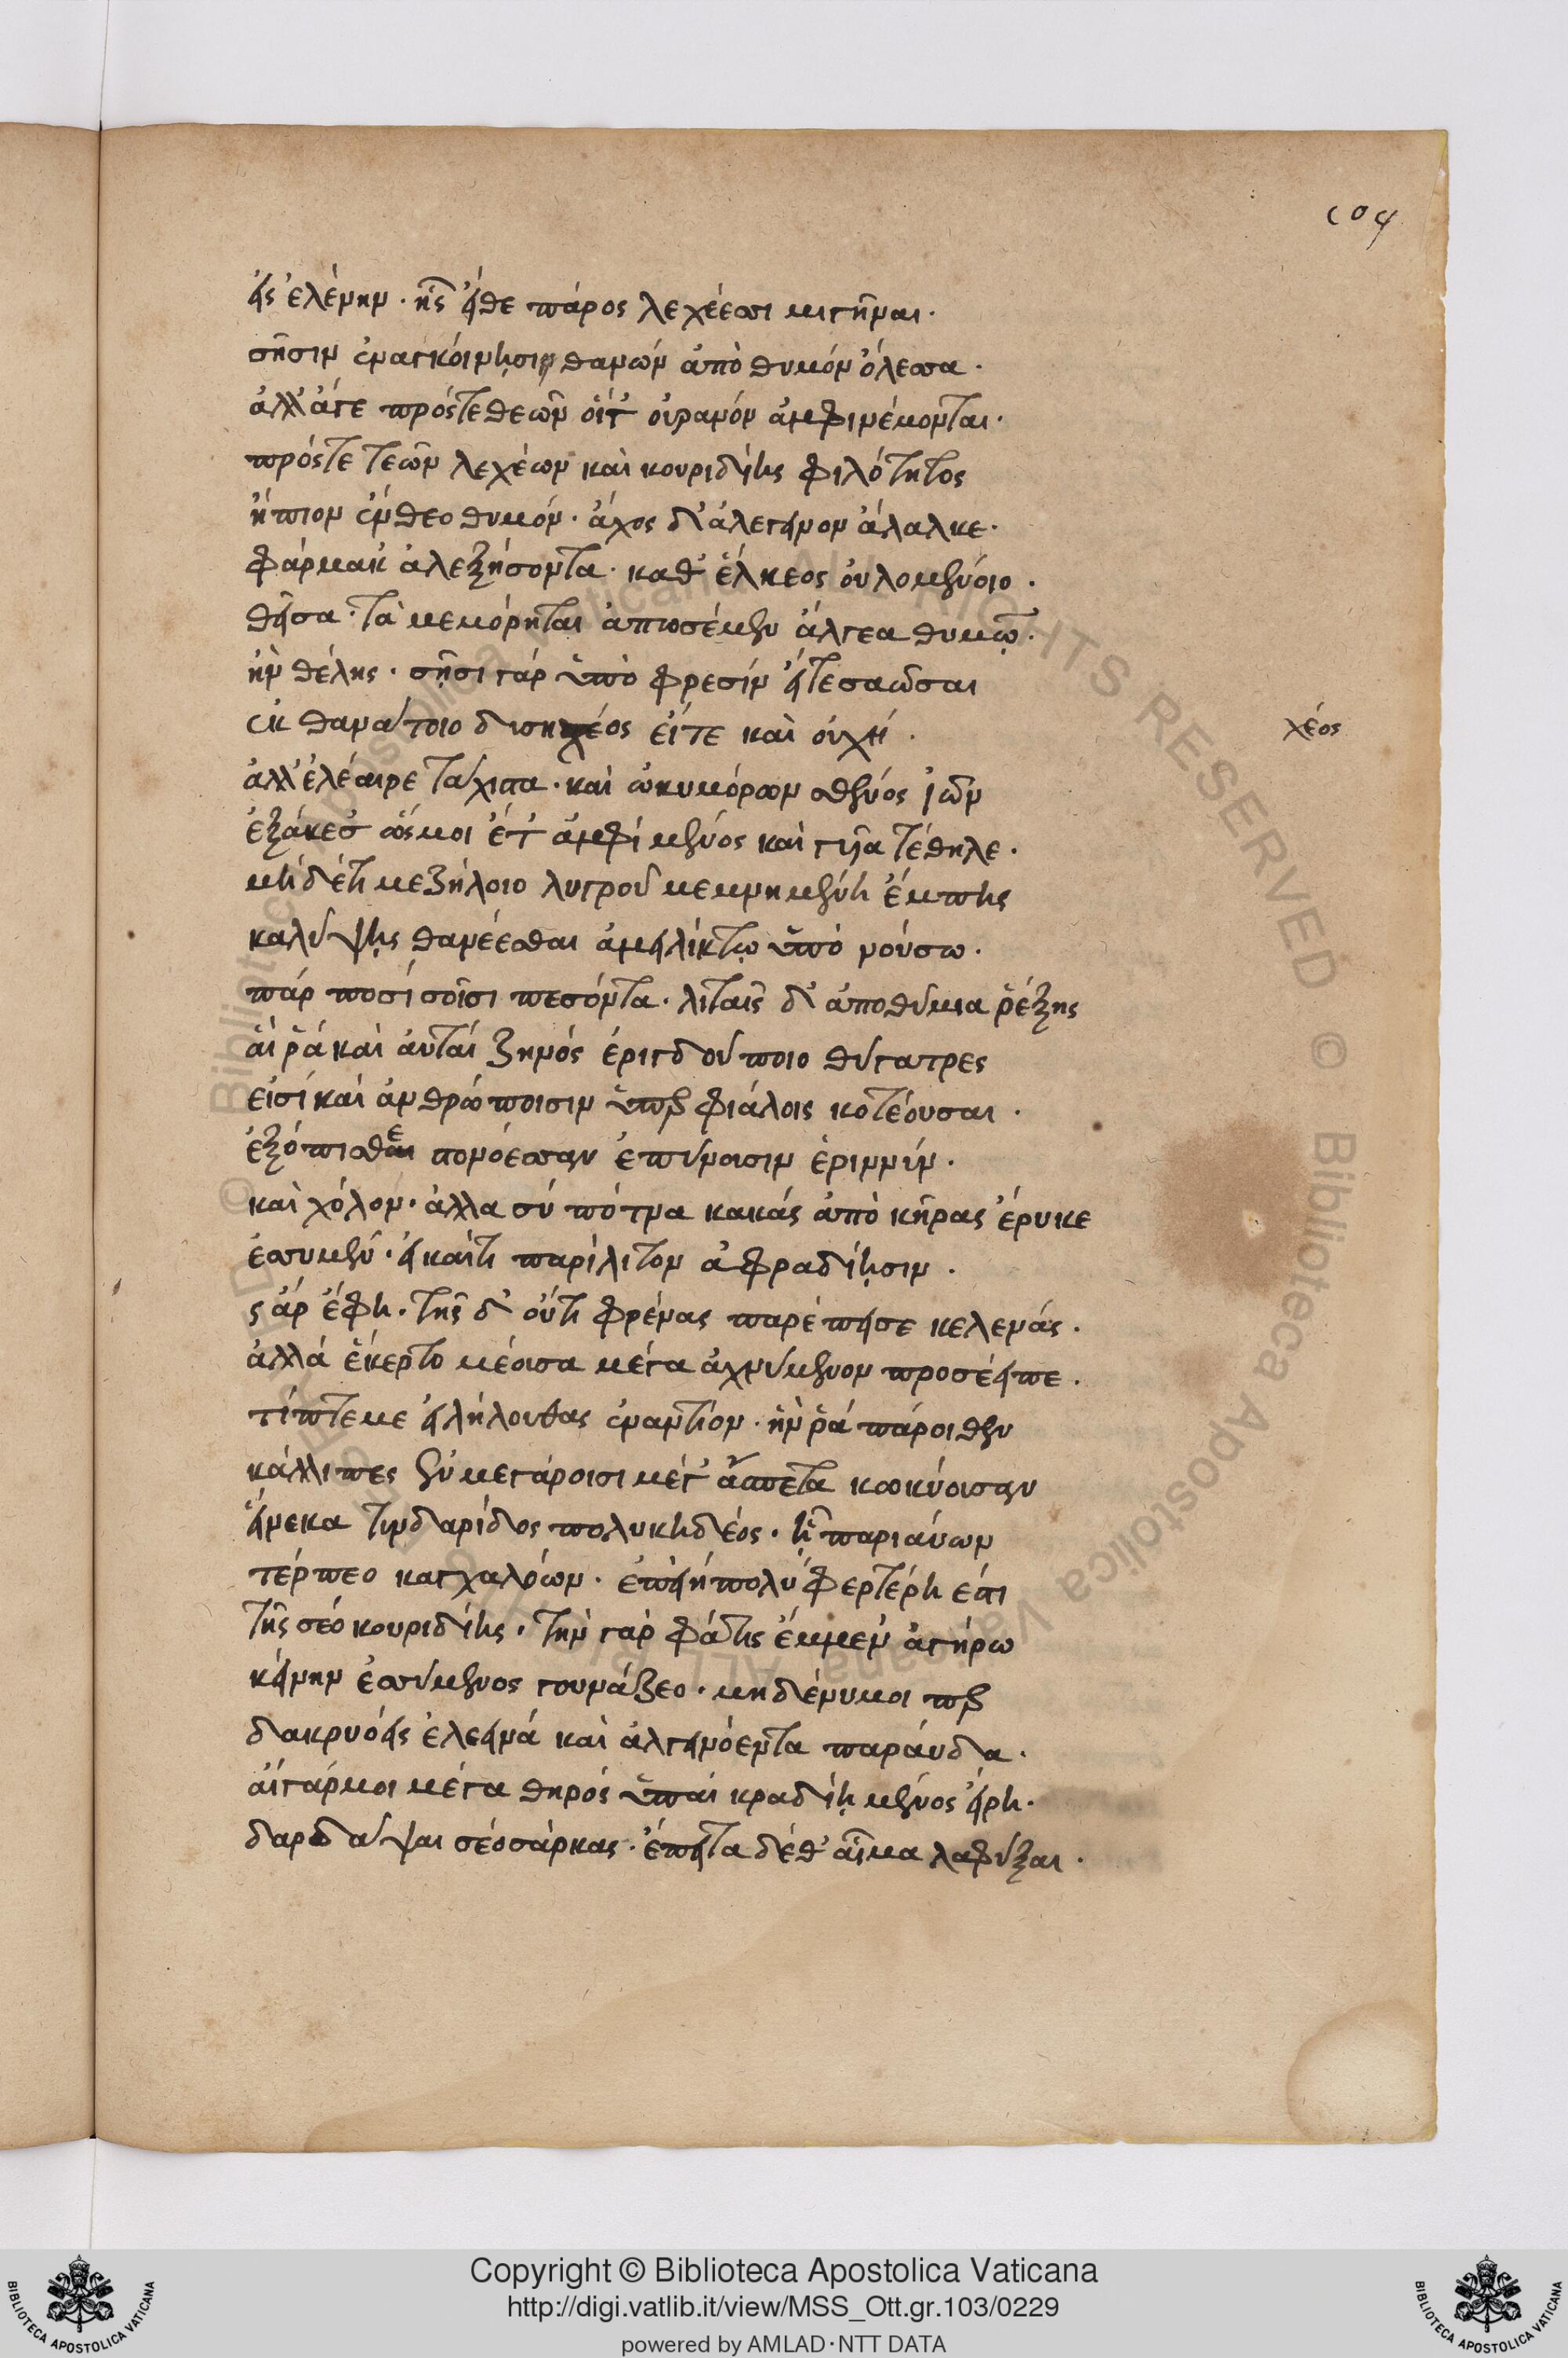 109
εἰς ἑλένην · ἧς εἴθε πάρος λεχέεσσι μιγῆναι ·
σῆσιν ἐναγκοίνῃσιν θανὼν ἀπὸ θυμὸν ὄλεσσα ·
ἀλλ' ἄγε πρός τε θεῶν οἵτ' οὐρανὸν ἀμφινέμονται ·
πρός τε τεῶν λεχέων καὶ κουριδίης φιλότητος
ἤπιον ἔνθεο θυμόν · ἄχος δ' ἀλεγεινὸν ἄλαλκε ·
φάρμακ' ἀλεξήσοντα · καθ' ἕλκεος οὐλομένοιο ·
θεῖσα · τὰ μεμόρηται ἀπωσέμεν ἄλγεα θυμῷ ·
ἢν θέλης · σῆσι γὰρ ὑπὸ φρεσὶν εἴτε σαῶσαι
ἐκ θανάτοιο δυσηχέος εἴτε καὶ οὐχί ·
χέος
ἀλλ' ἐλέαιρε τάχιστα · καὶ ὠκυμόρων σθένος ἰῶν
ἐξάκεσ' ὥς μοι ἔτ' ἀμφὶ μένος καὶ γυῖα τέθηλε ·
μὴ δέτι με ζήλοιο λυγροῦ μεμνημένη ἔμπης
καλύψῃς θανέεσθαι ἀμειλίκτῳ ὑπὸ νούσω ·
πὰρ ποσὶ σοῖσι πεσόντα · λιταῖς δ' ἀποθύμια ῥέξης
αἵ ῥα καὶ αὐταὶ ζηνὸς ἐριγδούποιο θύγατρες
εἰσὶ καὶ ἀνθρώποισιν ὑπερφιάλοις κοτέουσαι ·
ἐξόπισθε πονόεσσαν ἐπύνοισιν ἐριννύν ·
καὶ χόλον · ἀλλα σὺ πότνα κακὰς ἀπὸ κῆρας ἔρυκε
ἐσσυμέν · εἰ καίτι παρήλιτον ἀφραδίῃσιν ·
ς ἄρ ἔφη · τῆς δ' οὔτι φρένας παρέπεισε κελενάς ·
ἀλλά ἑ κερτομέουσα μέγα ἀχνύμενον προσέειπε ·
τίπτε με εἰλήλουθας ἐναντίον · ἥν ῥα πάροιθεν
κάλλιπες ἐν μεγάροισι μέγ' ἄσπετα κωκύουσαν
εἵνεκα τυνδαρίδος πολυκηδέος · ᾗ παριαύων
τέρπεο καγχαλόων · ἐπειὴ πολὺ φερτέρη ἐστι
τῆς σέο κουριδίης · τὴν γὰρ φάτις ἔμμεν ἀγήρω
κείνην ἐσσύμενος γουνάζεο · μὴ δένυμοι περ
δακρυόεις ἐλεεινὰ καὶ ἀλγεινόεντα παραύδα ·
αἲ γάρ μοι μέγα θηρὸς ὑπαὶ κραδίῃ μένος εἴη ·
δαρδάψαι σέο σάρκας · ἔπειτα δέθ' αἷμα λαφύξαι ·
Copyright © Biblioteca Apostolica Vaticana
http://digi.vatlib.it/view/MSS_Ott.gr.103/0229
powered by AMLAD·NTT DATA